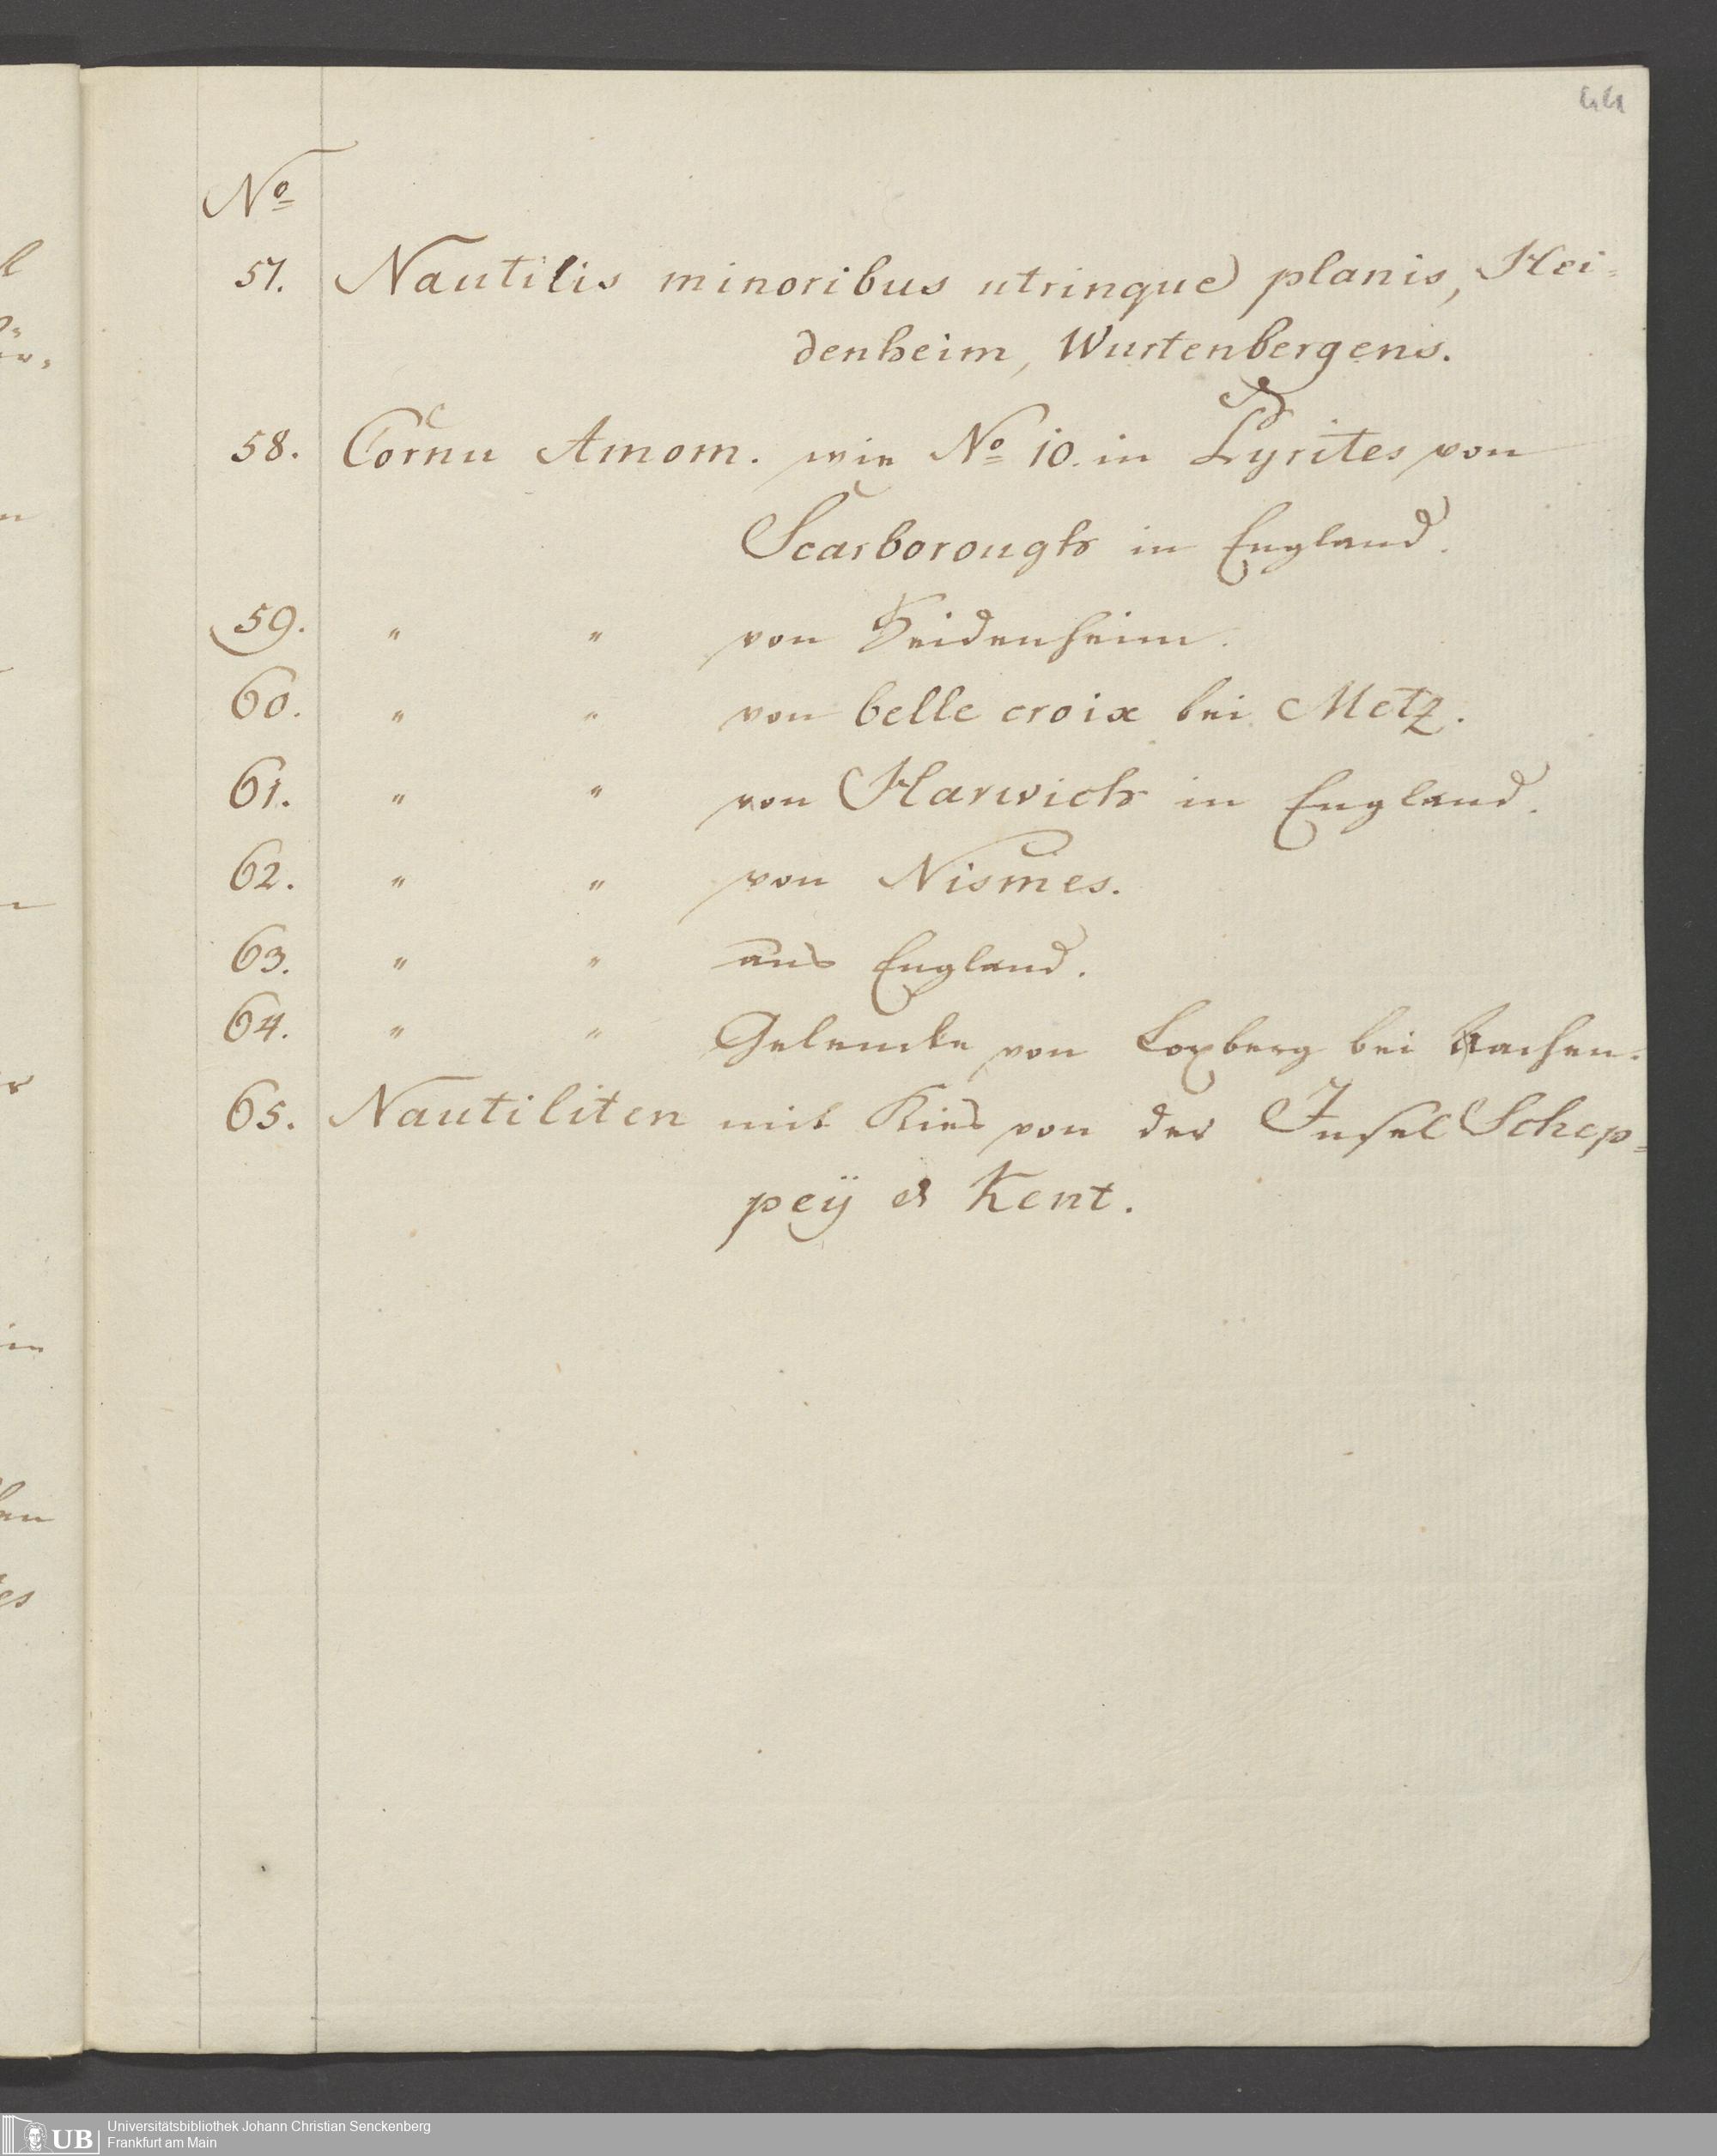 44
No
57. Nautilis minoribus utrinque planis, Hei=
denheim, Wurtenbergens.
58. Cornu Amom. wie No 10. in Lyrites von
Scarborough in England.
59. " " von Heidenheim.
60. " " von belle croix bei Metz.
61. " " von Harwich in England.
62. " " von Nismes.
63. " " aus England.
64. " " Gelencke von Loxberg bei Aachen.
65. Nautiliten mit Kies von der Insel Schep=
peÿ et Kent.
UB
Universitätsbibliothek Johann Christian Senckenberg
Frankfurt am Main